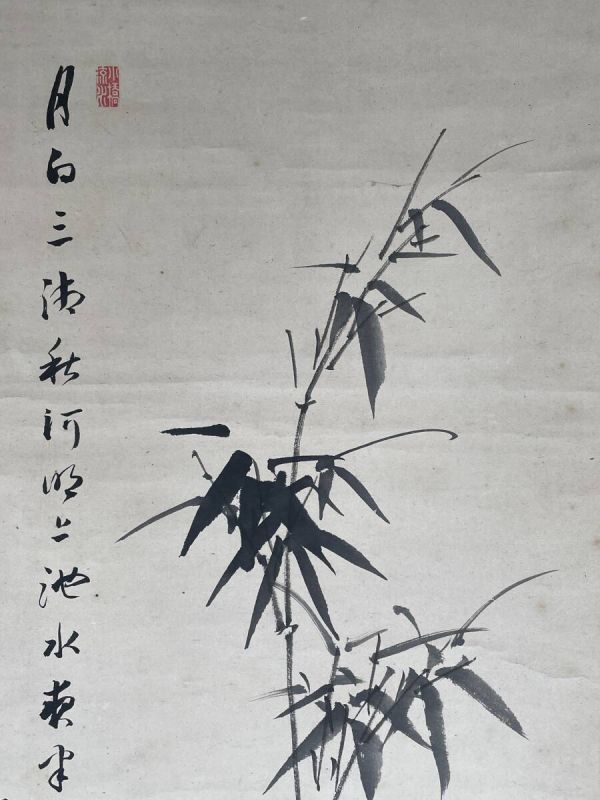 月白三清秋河明上池水夜半